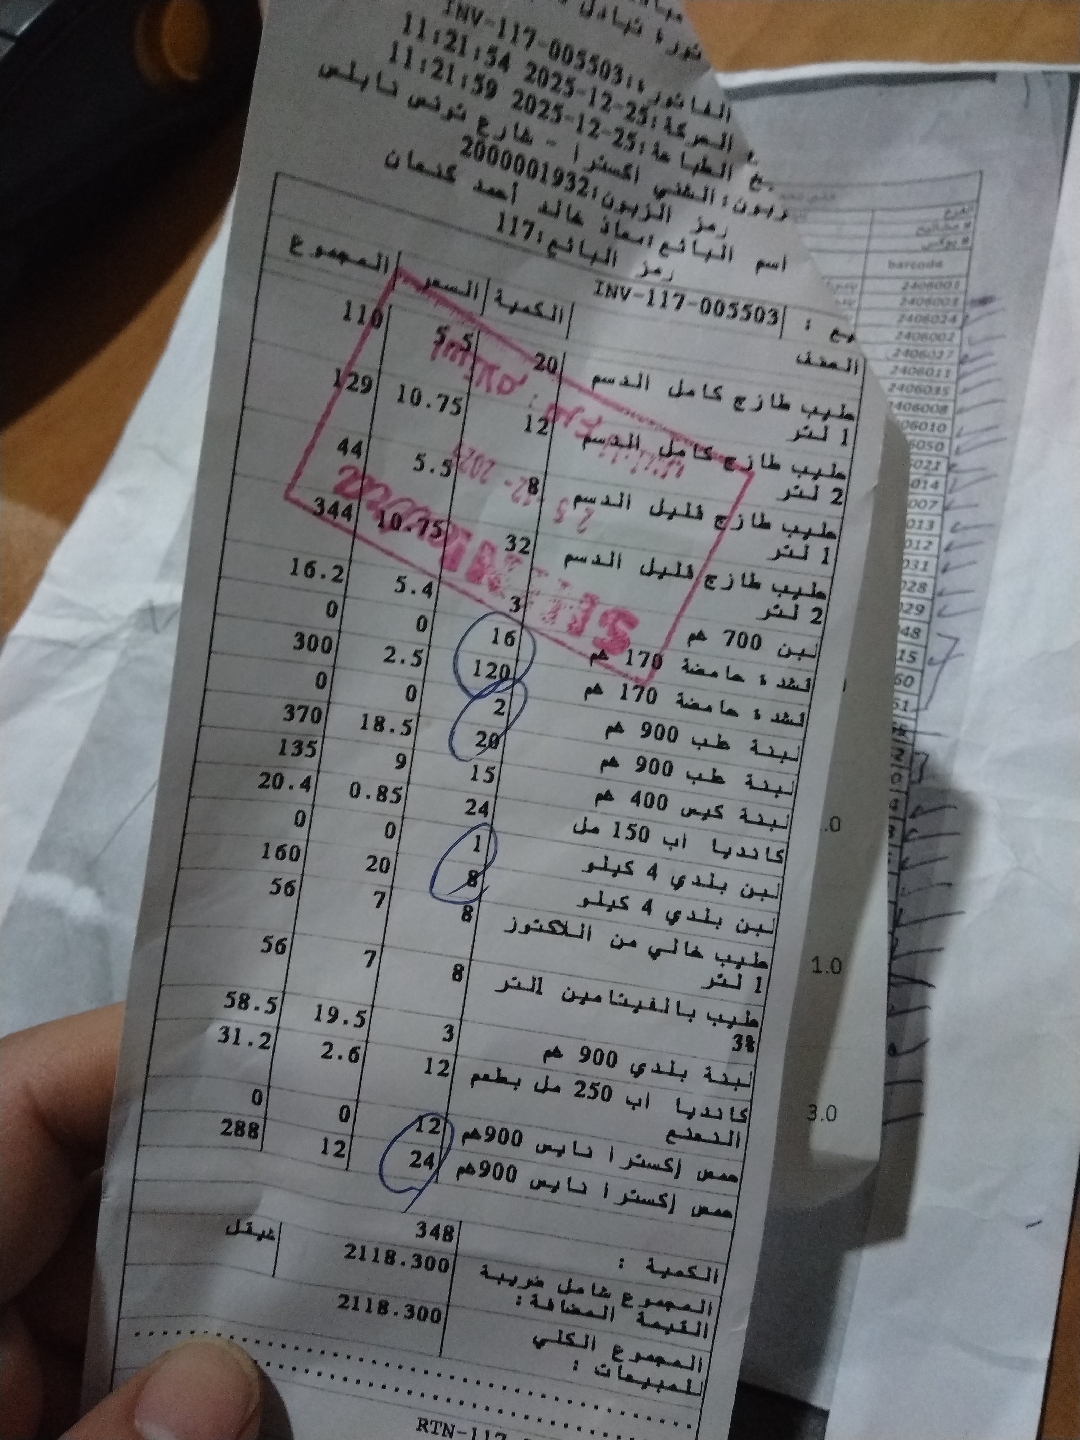 INV-117-005503:الفاتورة
الحركة:25-12-2025 11:21:54
خ الطباعة:25-12-2025 11:21:59
زبون:الشني اكسترا - شارع تونس نابلس
رمز الزبون:2000001932
اسم البائع:معاذ خالد أحمد كنعان
رمز البائع:117
بيع : INV-117-005503
الصنف الكمية السعر المجموع
حليب طازج كامل الدسم 1 لتر 20 5.5 110
حليب طازج كامل الدسم 2 لتر 12 10.75 129
حليب طازج قليل الدسم 1 لتر 8 5.5 44
حليب طازج قليل الدسم 2 لتر 32 10.75 344
لبن 700 غم 3 5.4 16.2
قشدة حامضة 170 غم 16 0 0
قشدة حامضة 170 غم 120 2.5 300
لبنة علب 900 غم 2 0 0
لبنة علب 900 غم 20 18.5 370
لبنة كيس 400 غم 15 9 135
كانديا اب 150 مل 24 0.85 20.4
لبن بلدي 4 كيلو 1 0 0
لبن بلدي 4 كيلو 8 20 160
حليب خالي من اللاكتوز 1 لتر 8 7 56
حليب بالفيتامين 1لتر 3% 8 7 56
لبنة بلدي 900 غم 3 19.5 58.5
كانديا اب 250 مل بطعم النعنع 12 2.6 31.2
حمص إكسترا نايس 900غم 12 0 0
حمص إكسترا نايس 900غم 24 12 288
الكمية : 348
المجموع شامل ضريبة القيمة المضافة: 2118.300 شيقل
المجموع الكلي للمبيعات : 2118.300
RTN-117
25 -12- 2025
الفرع
barcode
2406001
2406024
2406002
2406027
2406011
2406035
406008
06010
.0
1.0
3.0